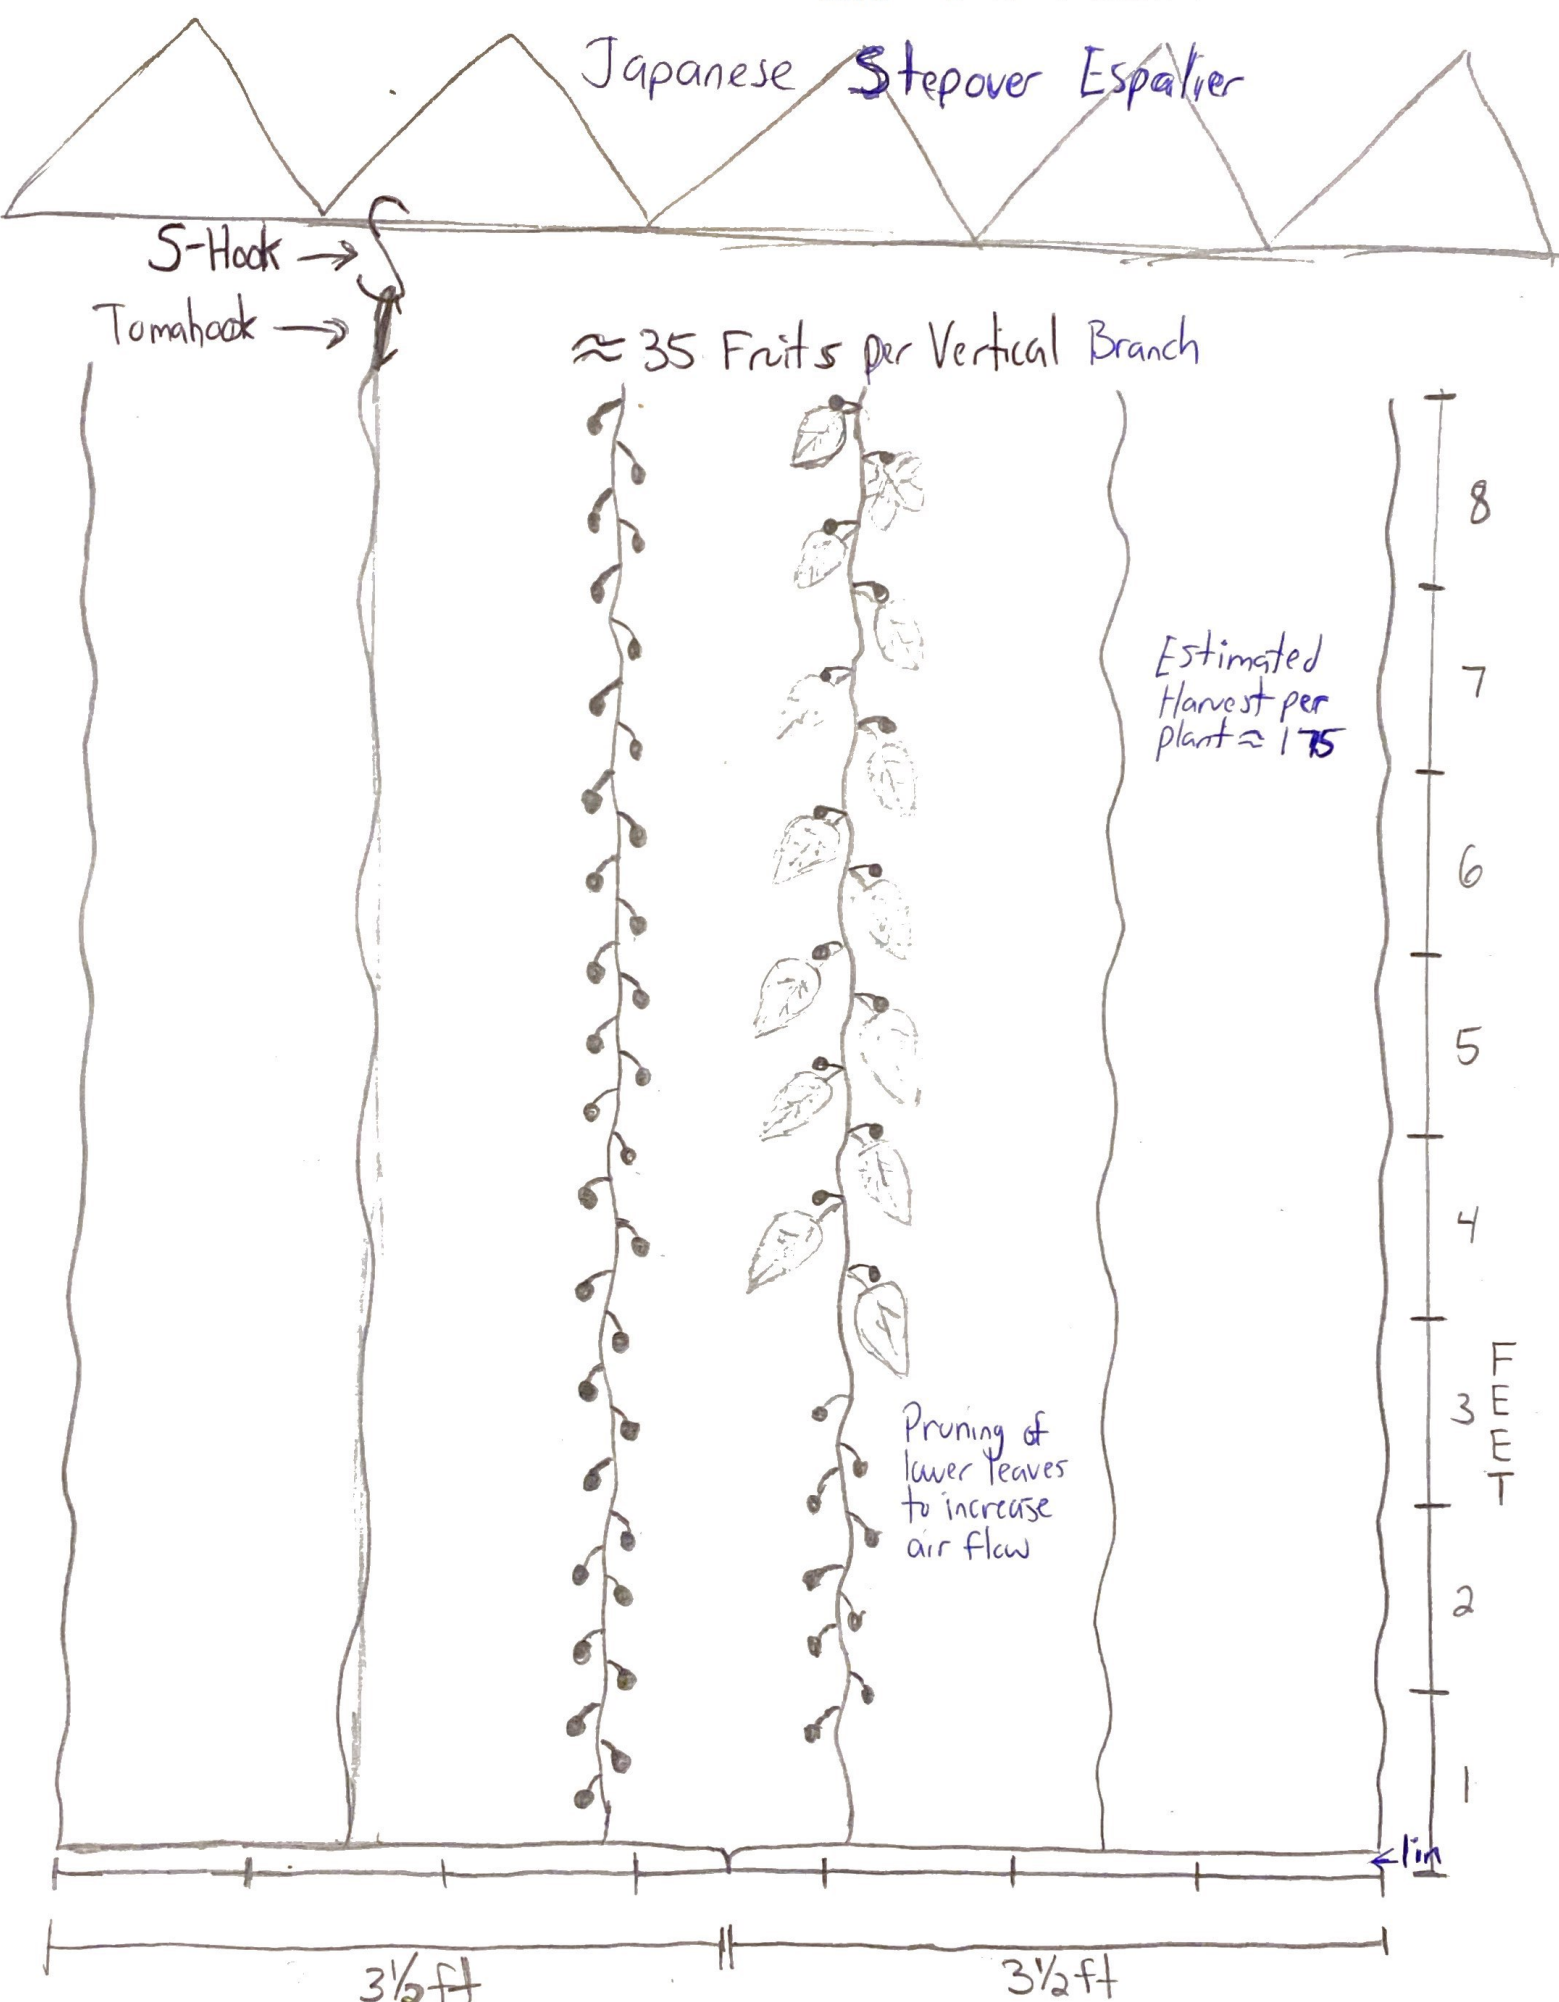 Japanese Stepover Espalier
S-Hook →
Tomahook →
≈ 35 Fruits per Vertical Branch
8
Estimated
Harvest per
plant ≈ 175
7
6
5
4
3
FEET
Pruning of
lower leaves
to increase
air flow
2
1
← 1in
3½ft
3½ft